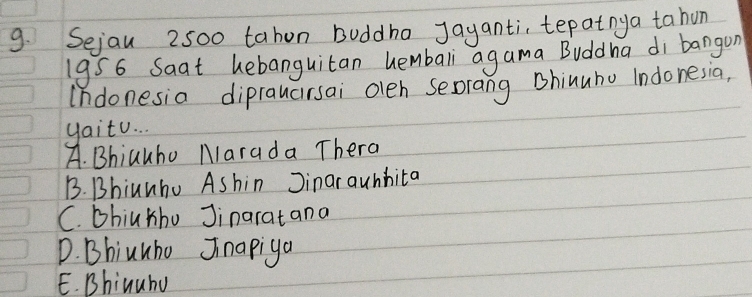 9. Sejak 2500 tahun Buddha Jayanti, tepatnya tahun
1956 saat kebangkitan kembali agama Buddha di bangun
Indonesia diprakarsai oleh seorang Bhikkhu Indonesia,
yaitu...
A. Bhikkhu Narada Thera
B. Bhikkhu Ashin Jinarakkhita
C. Bhikkhu Jinaratana
D. Bhikkhu Jinapiya
E. Bhikkhu